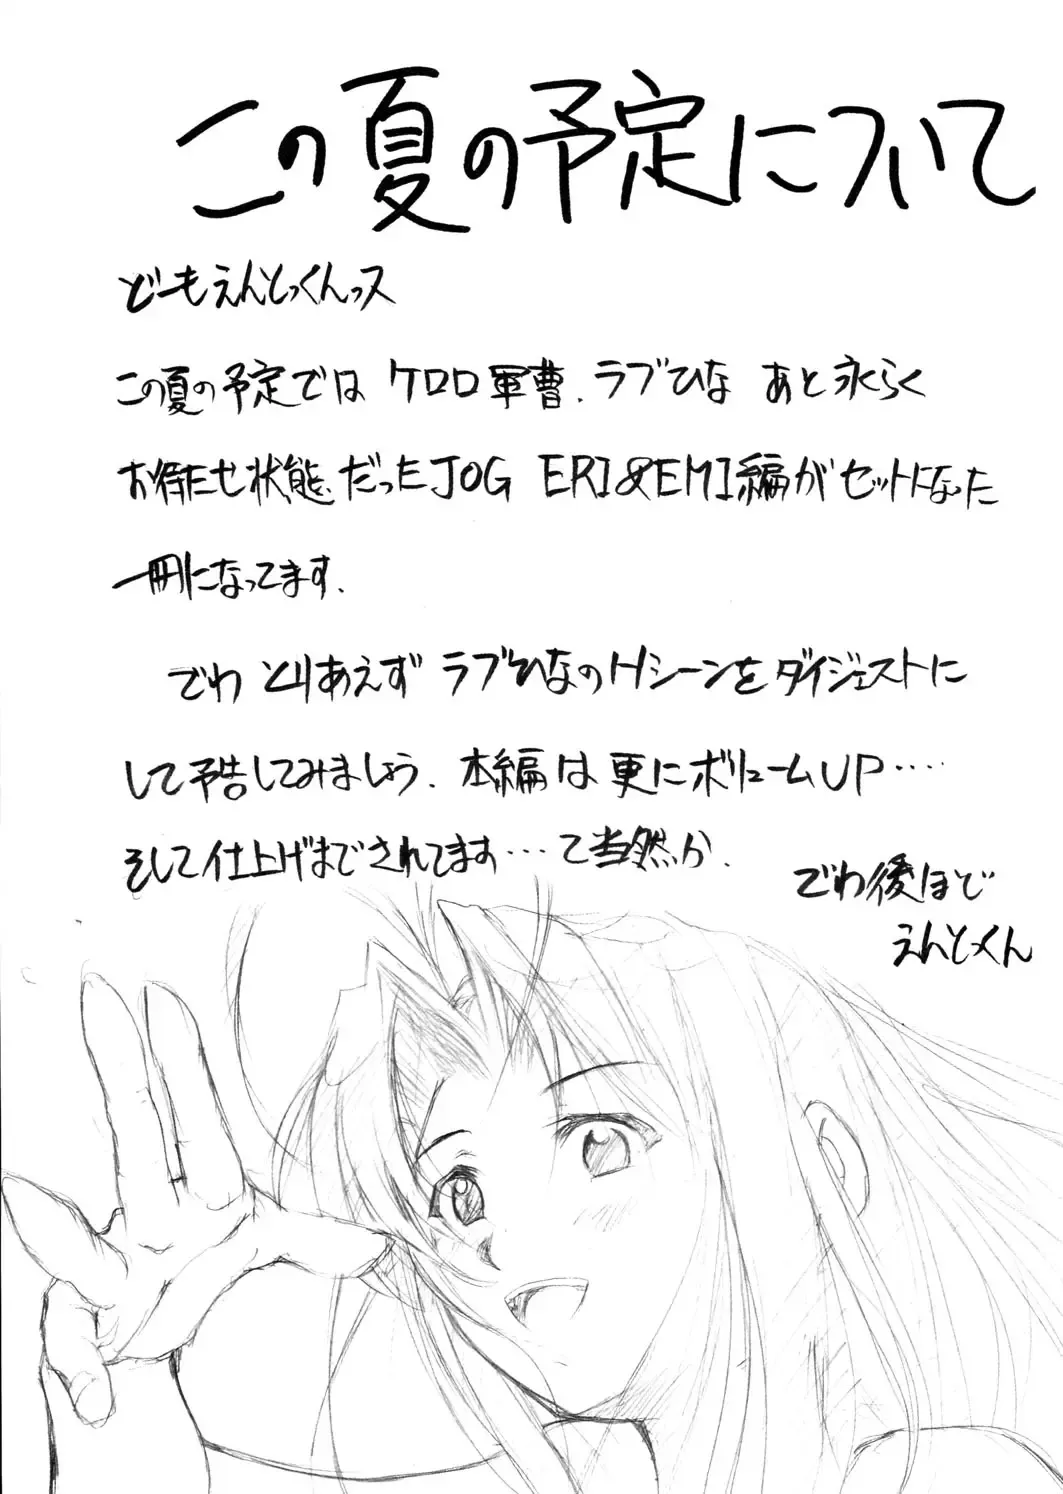 この夏の予定について
どーもえんとっくんっス
この夏の予定では ケロロ軍曹、ラブひな あと永らく
お待たせ状態だったJOG ERI&EMI編がセットになった
一冊になってます.
でわ とりあえず ラブひなのHシーンをダイジェストに
して予告してみましょう. 本編は更にボリュームUP‥‥
そして仕上げまでされてます…て当然か.
でわ後ほど
えんとっくん